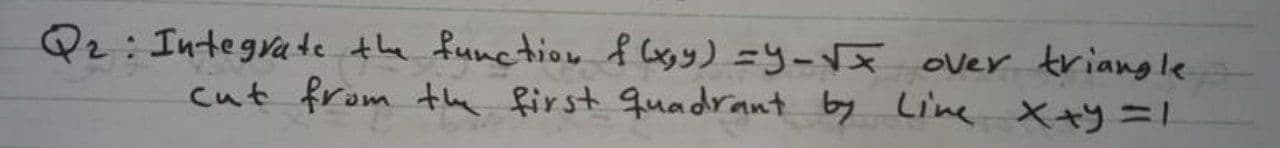 Q2: Integrate the function f(x,y) = y-√x over triangle
cut from the first quadrant by Line x+y=1